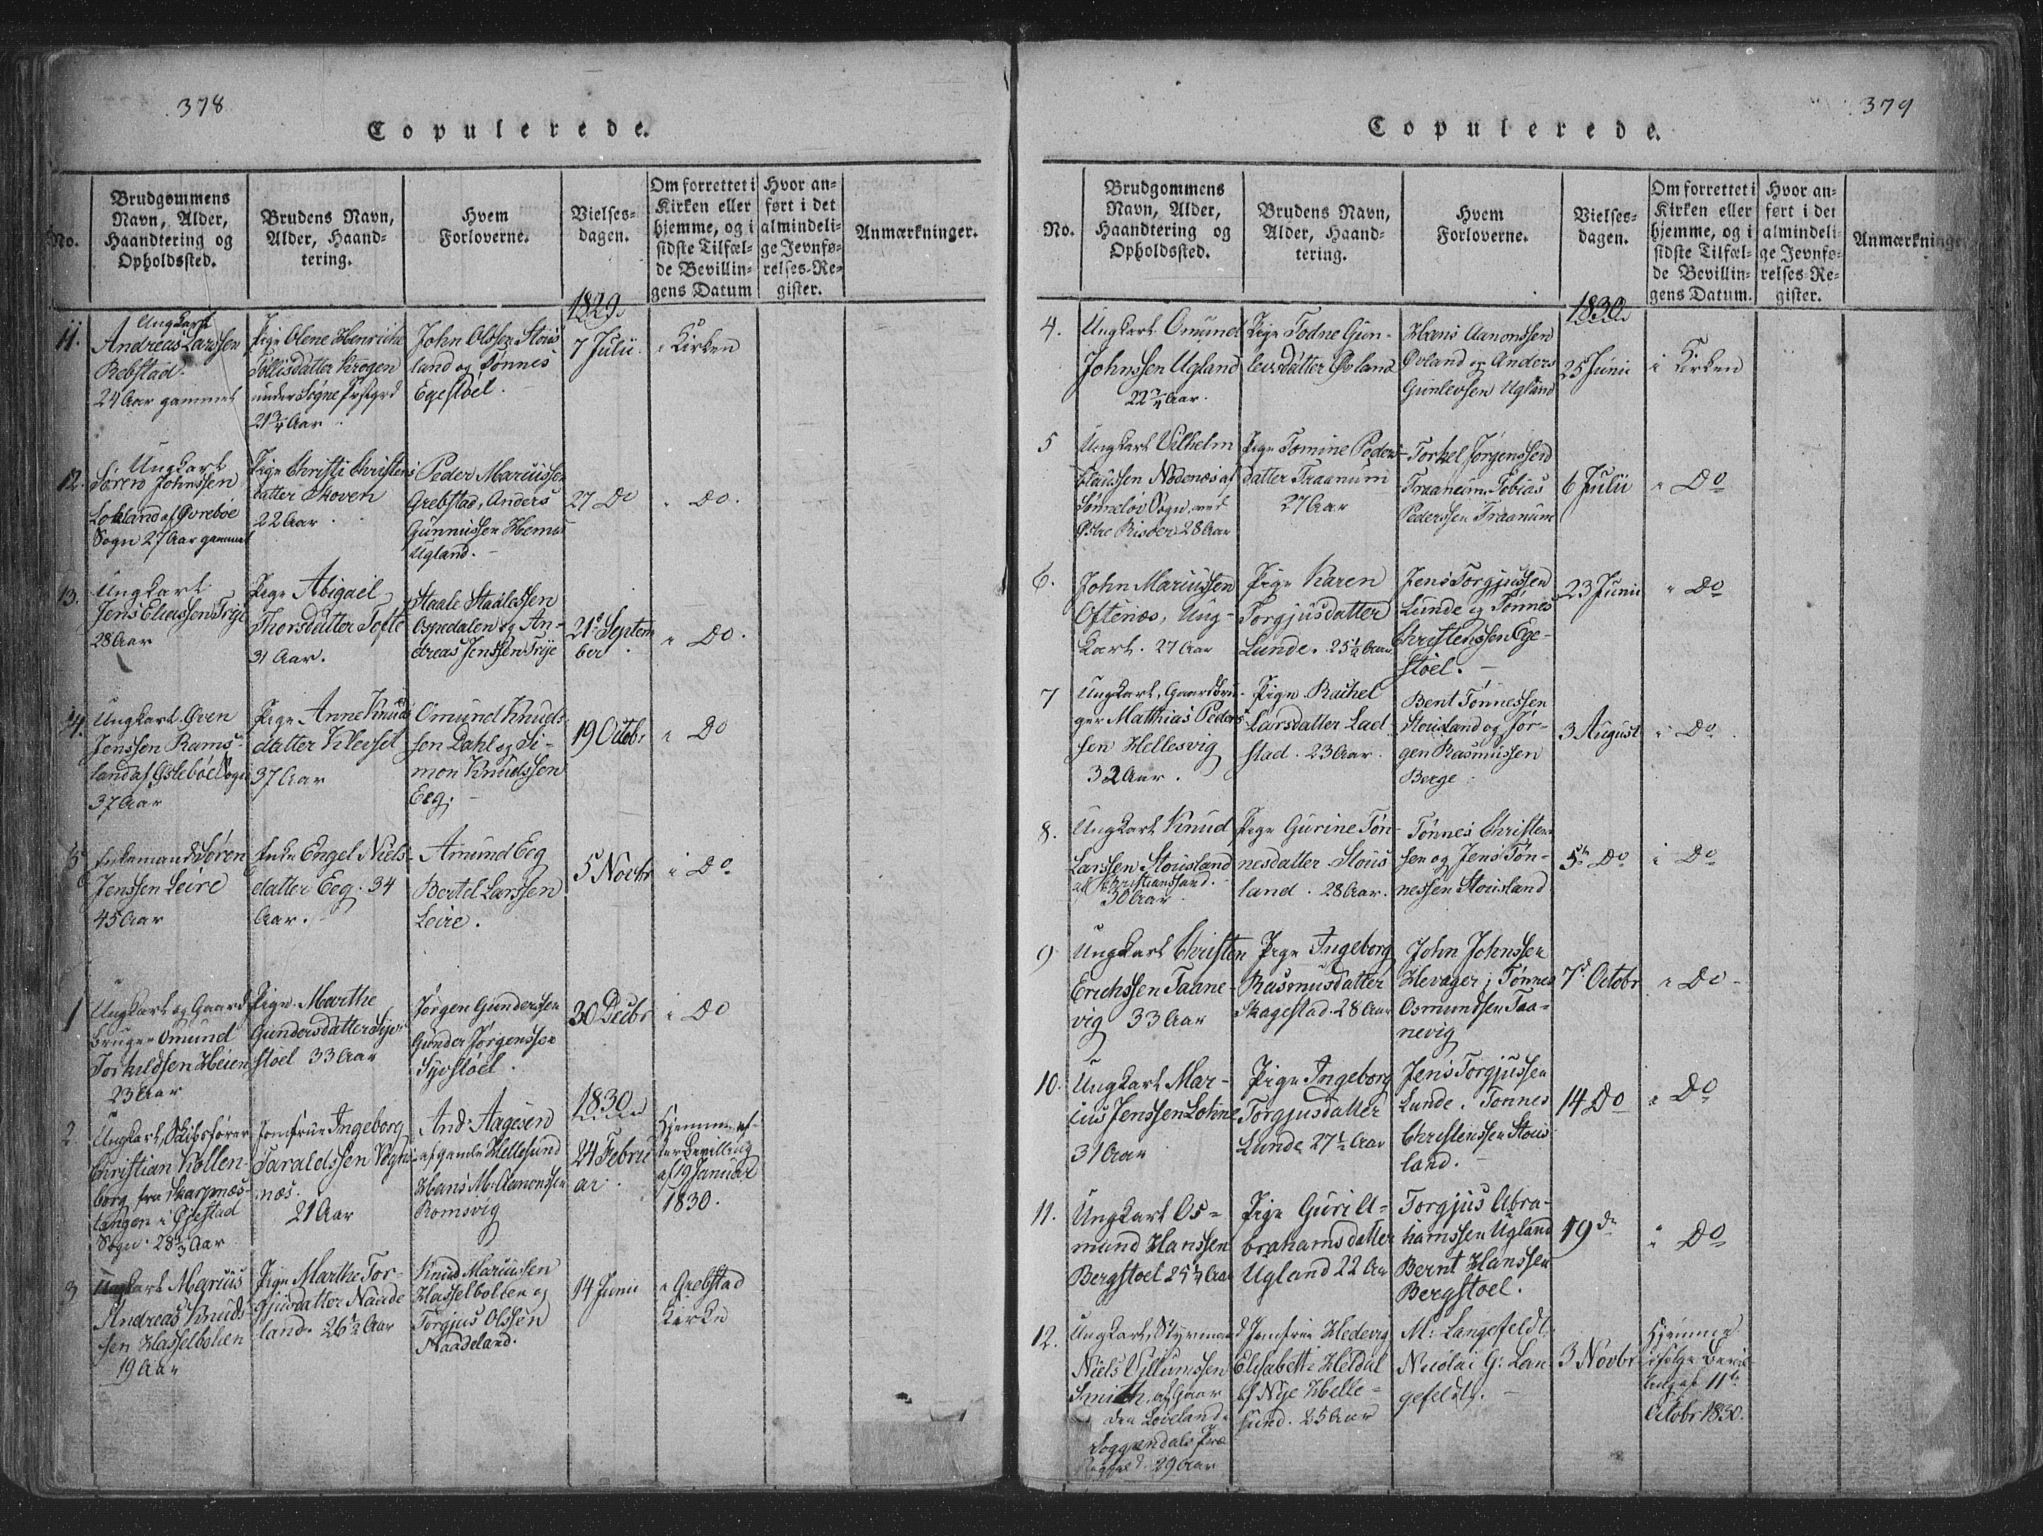 378
Copulerede.
No.
Brudgommens Navn, Alder, Haandtering og Opholdssted.
Brudens Navn, Alder, Haandtering.
Hvem Forloverne.
Vielses-dagen.
Om forrettet i Kirken eller hjemme, og i sidste Tilfælde Bevillingens Datum
Hvor anført i det almindelige Jevnførelses-Register.
Anmærkninger.
1829.
11.
Ungkarl
Andreas Larssen
Rebstad.
24 Aar gammel
Pige Olene Henrikke
Tollisdatter Krogen
under Søgne
21 3/4 Aar
John Olssen Stous
land og Tønnes
Egestøel.
7 Julii.
i Kirken
12.
Ungkarl
Søren Johnssen
Lohland af Øvrebøe
Sogn 27 Aar gammel
Pige Christi Christens
datter Skoven
22 Aar.
Peder Mariussen
Grebstad, Anders
Gunnussen Hems
Ugland.
27 Do
" Do.
13.
Ungkarl
Jens Eliassen Trye
28 Aar
Pige Abigael
Thorsdatter Tofte
31 Aar.
Staale Staalessen
Ospedalen og An-
dreas Jenssen Trye
21d Septem
ber
" Do.
14.
Ungkarl Øven
Jenssen Rams-
land af Øslebøe Sogn
37 Aar
Pige Anne Knuds
datter Klevset
37 Aar
Omund Knuds
sen Dahl og Si-
mon Knudssen
Eeg.
19 Octobr
" Do
15
Enkemand Søren
Jenssen Leire
45 Aar
Enke Engel Niels-
datter Eeg. 34
Aar.
Amund Eeg
Bertel Larssen
Leire.
5 Novbr
i Do
1
Ungkarl og Gaard
bruger Omund
Torkildsen Heien
23 Aar
Pige Marthe
Gundersdatter Syv
støel 33 Aar
Jørgen Gunderssen
Gunder Jørgenssen
Syvstøel.
30 Decbr
i Do
1830.
2.
Ungkarl, Skibsfører
Christian Kollen-
borg, fra Skarpnæs-
tangen i Øjestad
Sogn. 28 2/3 Aar
Jomfrue Ingeborg
Taraldssen Vogns-
næs.
21 Aar
And: Aagesen
af gamle Hellesund
Hans M: Aanonssen
Romsvig
24 Febru
ar.
Hjemme ef-
ter Bevilling
af 19 Januar
1830.
3
Ungkarl Marius
Andreas Knuds-
sen Hasselbolten
19 Aar
Pige Marthe Tor-
gjusdatter Naade
land. 26 1/2 Aar
Knud Mariussen
Hasselbolten og
Torgjus Olssen
Naadeland.
14 Junii
i Grebstad
Kirke
379
Copulerede.
No.
Brudgommens Navn, Alder, Haandtering og Opholdssted.
Brudens Navn, Alder, Haandtering.
Hvem Forloverne.
Vielses-dagen.
Om forrettet i Kirken eller hjemme, og i sidste Tilfælde Bevillingens Datum.
Hvor anført i det almindelige Jevnførelses-Register.
Anmærkninger
1830.
4.
Ungkarl Omund
Johnssen Ugland
22 3/4 Aar.
Pige Todne Gun-
levsdatter Øvland
Hans Aanonssen
Øvland og Anders
Gunlevsen Ugland
25 Junii
i Kirken
5
Ungkarl Vilhelm
Claussen Nødenæs af
Søndeløv Sogn ved
Østre Risøer 28 Aar
Pige Tomine Peders-
datter Traanum
27 Aar
Torkel Jørgenssen
Traanum, Tobias
Pederssen Traanum
6 Julii
" Do
6.
John Mariussen
Oftenæs, Ung-
karl. 27 Aar
Pige Karen
Torgjusdatter
Lunde. 25 1/2 Aar
Jens Torgjussen
Lunde og Tønnes
Christenssen Ege-
støel.
23 Junii
" Do
7
Ungkarl, Gaardbru-
ger Matthias Peders
sen Hellesvig
32 Aar.
Pige Rachel
Larsdatter Lad
stad. 23 Aar.
Bent Tønnessen
Stousland og Jør-
gen Rasmussen
Berge
3 August
i Do
8.
Ungkarl Knud
Larssen Stousland
af Christianssand.
30 Aar
Pige Gurine Tøn-
nesdatter Stous
land. 28 Aar.
Tønnes Christen-
sen og Jens Tøn-
nessen Stousland
5te Do
i Do
9
Ungkarl Christen
Erichssen Taane-
vig 33 Aar
Pige Ingeborg
Rasmusdatter
Skagestad. 28 Aar
John Johnssen
Hevager, Tønnes
Osmundssen Taa-
nevig
7d Octobr
" Do
10.
Ungkarl Mar-
ius Jenssen Lohne
31 Aar
Pige Ingeborg
Torgjusdatter
Lunde 27 1/2 Aar
Jens Torgjussen
Lunde. Tønnes
Christenssen Stous
land.
14 Do
" Do
11.
Ungkarl Os-
mund Hanssen
Bergstøel 25 1/4 Aar
Pige Guri A-
brahamsdatter
Ugland 22 Aar
Torgjus Abra-
hamssen Ugland
Bernt Hanssen
Bergstoel.
19 do
" Do
12.
Ungkarl, Styrmand
Niels Villumssen
Smith, af Gaar
den Loveland
Soggendals Præ
stegjeld. 29 Aar
Jomfrue Hedevig
Elisabeth Heldal
af Nye Helle-
sund. 25 Aar
M: Langefeldt,
Nicolai G: Lan
gefeldt.
3 Novbr
Hjemme
ifølge Bevil
ling af 11te
Octobr 1830.